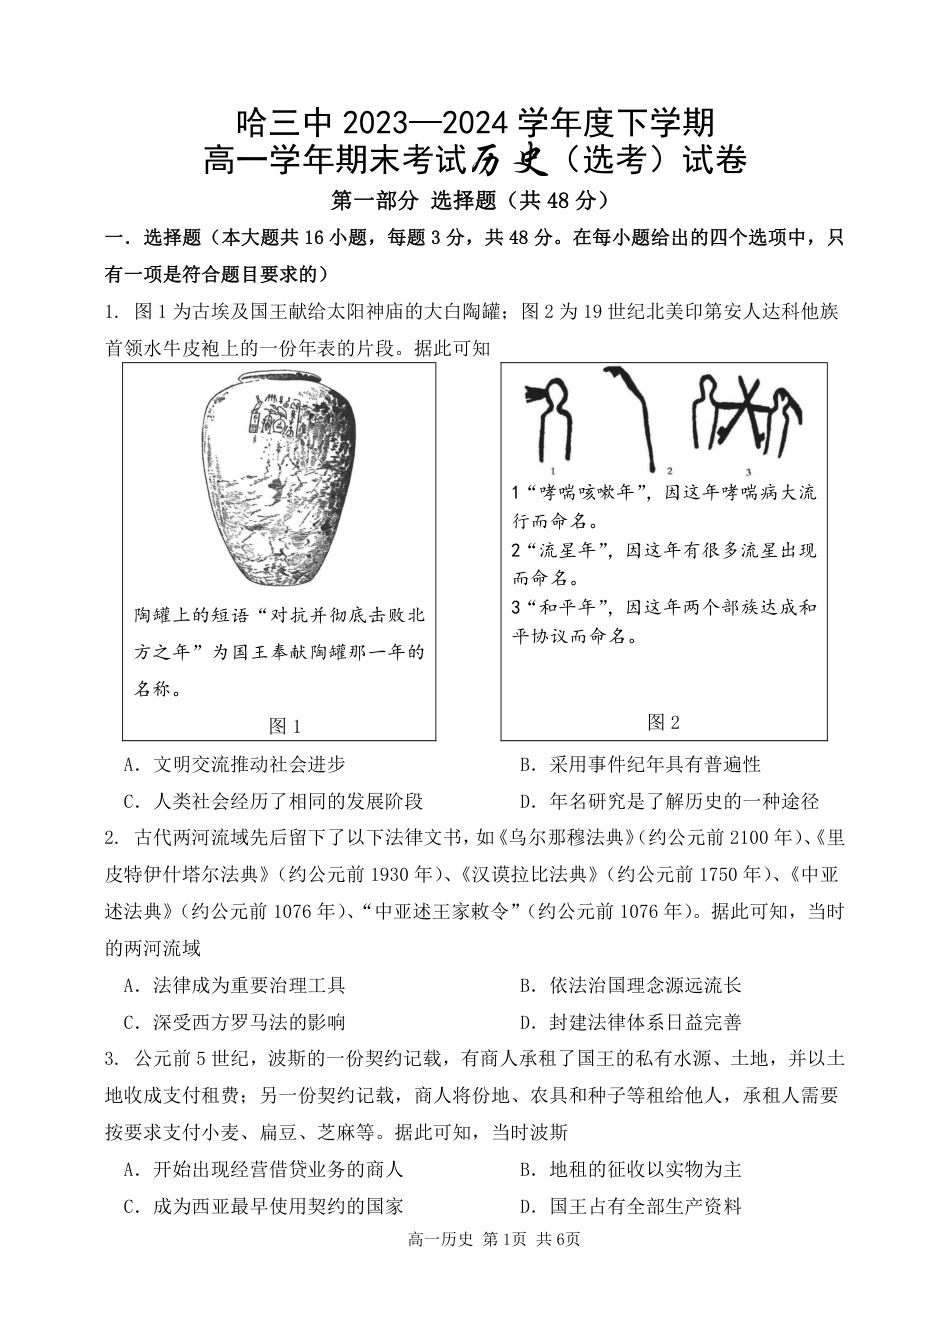 哈三中 2023—2024 学年度下学期
高一学年期末考试历史（选考）试卷
第一部分 选择题（共 48 分）
一．选择题（本大题共 16 小题，每题 3 分，共 48 分。在每小题给出的四个选项中，只
有一项是符合题目要求的）
1. 图 1 为古埃及国王献给太阳神庙的大白陶罐；图 2 为 19 世纪北美印第安人达科他族
首领水牛皮袍上的一份年表的片段。据此可知
陶罐上的短语“对抗并彻底击败北
方之年”为国王奉献陶罐那一年的
名称。
图 1
1 2 3
1“哮喘咳嗽年”，因这年哮喘病大流
行而命名。
2“流星年”，因这年有很多流星出现
而命名。
3“和平年”，因这年两个部族达成和
平协议而命名。
图 2
A．文明交流推动社会进步 B．采用事件纪年具有普遍性
C．人类社会经历了相同的发展阶段 D．年名研究是了解历史的一种途径
2. 古代两河流域先后留下了以下法律文书，如《乌尔那穆法典》（约公元前 2100 年）、《里
皮特伊什塔尔法典》（约公元前 1930 年）、《汉谟拉比法典》（约公元前 1750 年）、《中亚
述法典》（约公元前 1076 年）、“中亚述王家敕令”（约公元前 1076 年）。据此可知，当时
的两河流域
A．法律成为重要治理工具 B．依法治国理念源远流长
C．深受西方罗马法的影响 D．封建法律体系日益完善
3. 公元前 5 世纪，波斯的一份契约记载，有商人承租了国王的私有水源、土地，并以土
地收成支付租费；另一份契约记载，商人将份地、农具和种子等租给他人，承租人需要
按要求支付小麦、扁豆、芝麻等。据此可知，当时波斯
A．开始出现经营借贷业务的商人 B．地租的征收以实物为主
C．成为西亚最早使用契约的国家 D．国王占有全部生产资料
高一历史 第 1页 共 6页